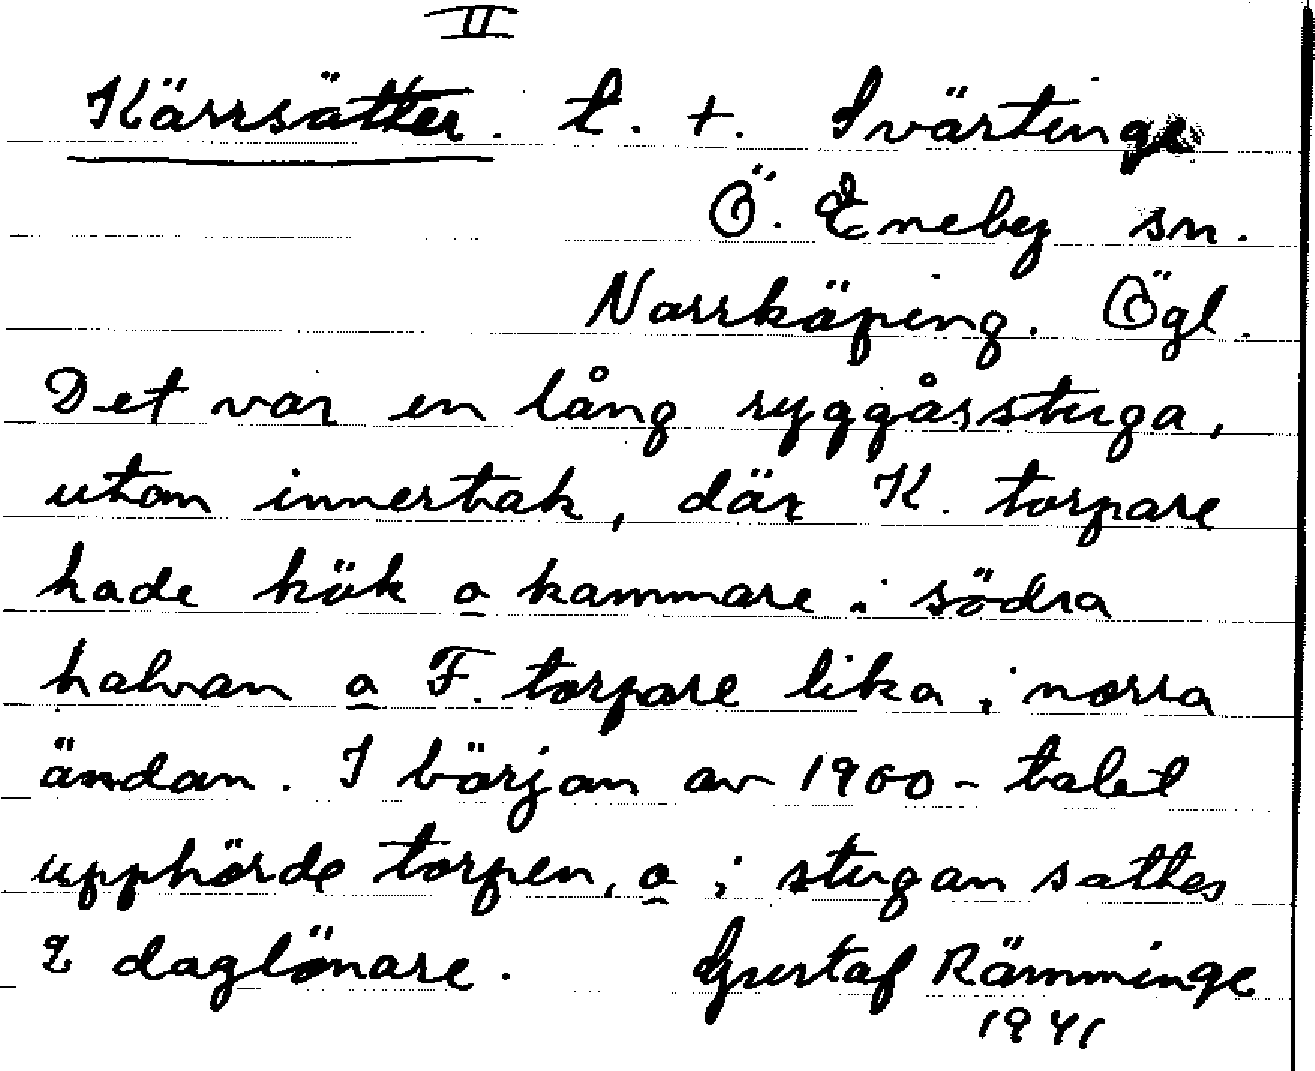 II
Kärrsätter. t. t. Svärtinge
Ö. Eneby sn.
Norrköping. Ögl.
Det var en lång ryggåsstuga,
utan innertak, där K. torpare
hade kök o kammare i södra
halvan o F. torpare lika i norra
ändan. I början av 1900-talet
upphörde torpen, o i stugan sattes
2 daglönare. Gustaf Rämminge
1941